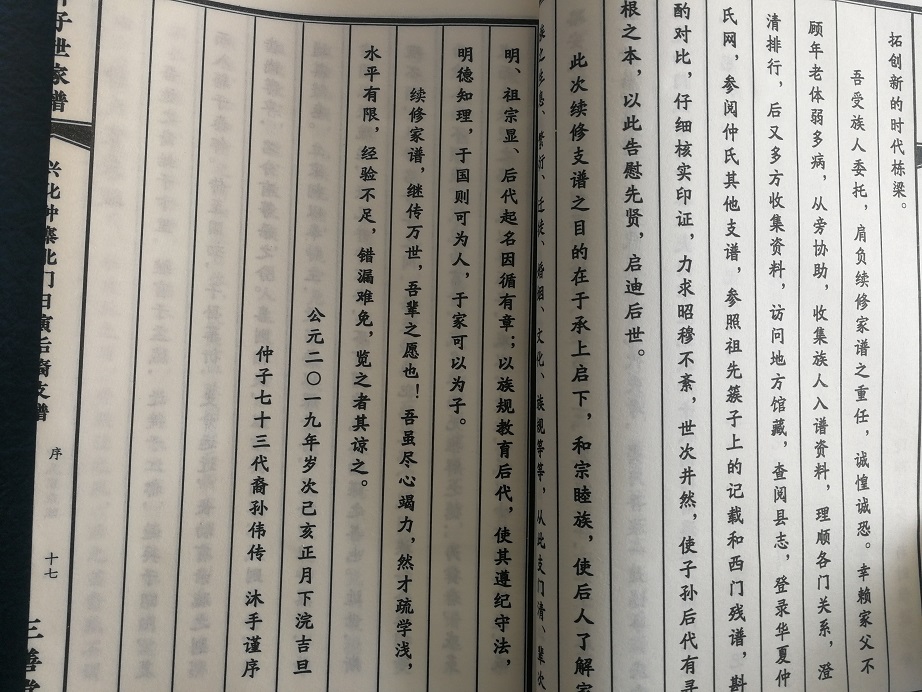 拓创新的时代栋梁。
吾受族人委托，肩负续修家谱之重任，诚惶诚恐。幸赖家父不
顾年老体弱多病，从旁协助，收集族人入谱资料，理顺各门关系，澄
清排行，后又多方收集资料，访问地方馆藏，查阅县志，登录华夏仲
氏网，参阅仲氏其他支谱，参照祖先簇子上的记载和西门残谱，斟
酌对比，仔细核实印证，力求昭穆不紊，世次井然，使子孙后代有寻
根之本，以此告慰先贤，启迪后世。
此次续修支谱之目的在于承上启下，和宗睦族，使后人了解家
繁衍、迁徙、婚姻、文化、族规等等，从此支门清、辈次
明、祖宗显、后代起名因循有章；以族规教育后代，使其遵纪守法，
明德知理，于国则可为人，于家可以为子。
续修家谱，继传万世，吾辈之愿也！吾虽尽心竭力，然才疏学浅，
水平有限，经验不足，错漏难免，览之者其谅之。
公元二〇一九年岁次己亥正月下浣吉旦
仲子七十三代裔孙伟传沐手谨序
子世家谱
兴化仲寨北门曰演后裔支谱
序
十七
三善